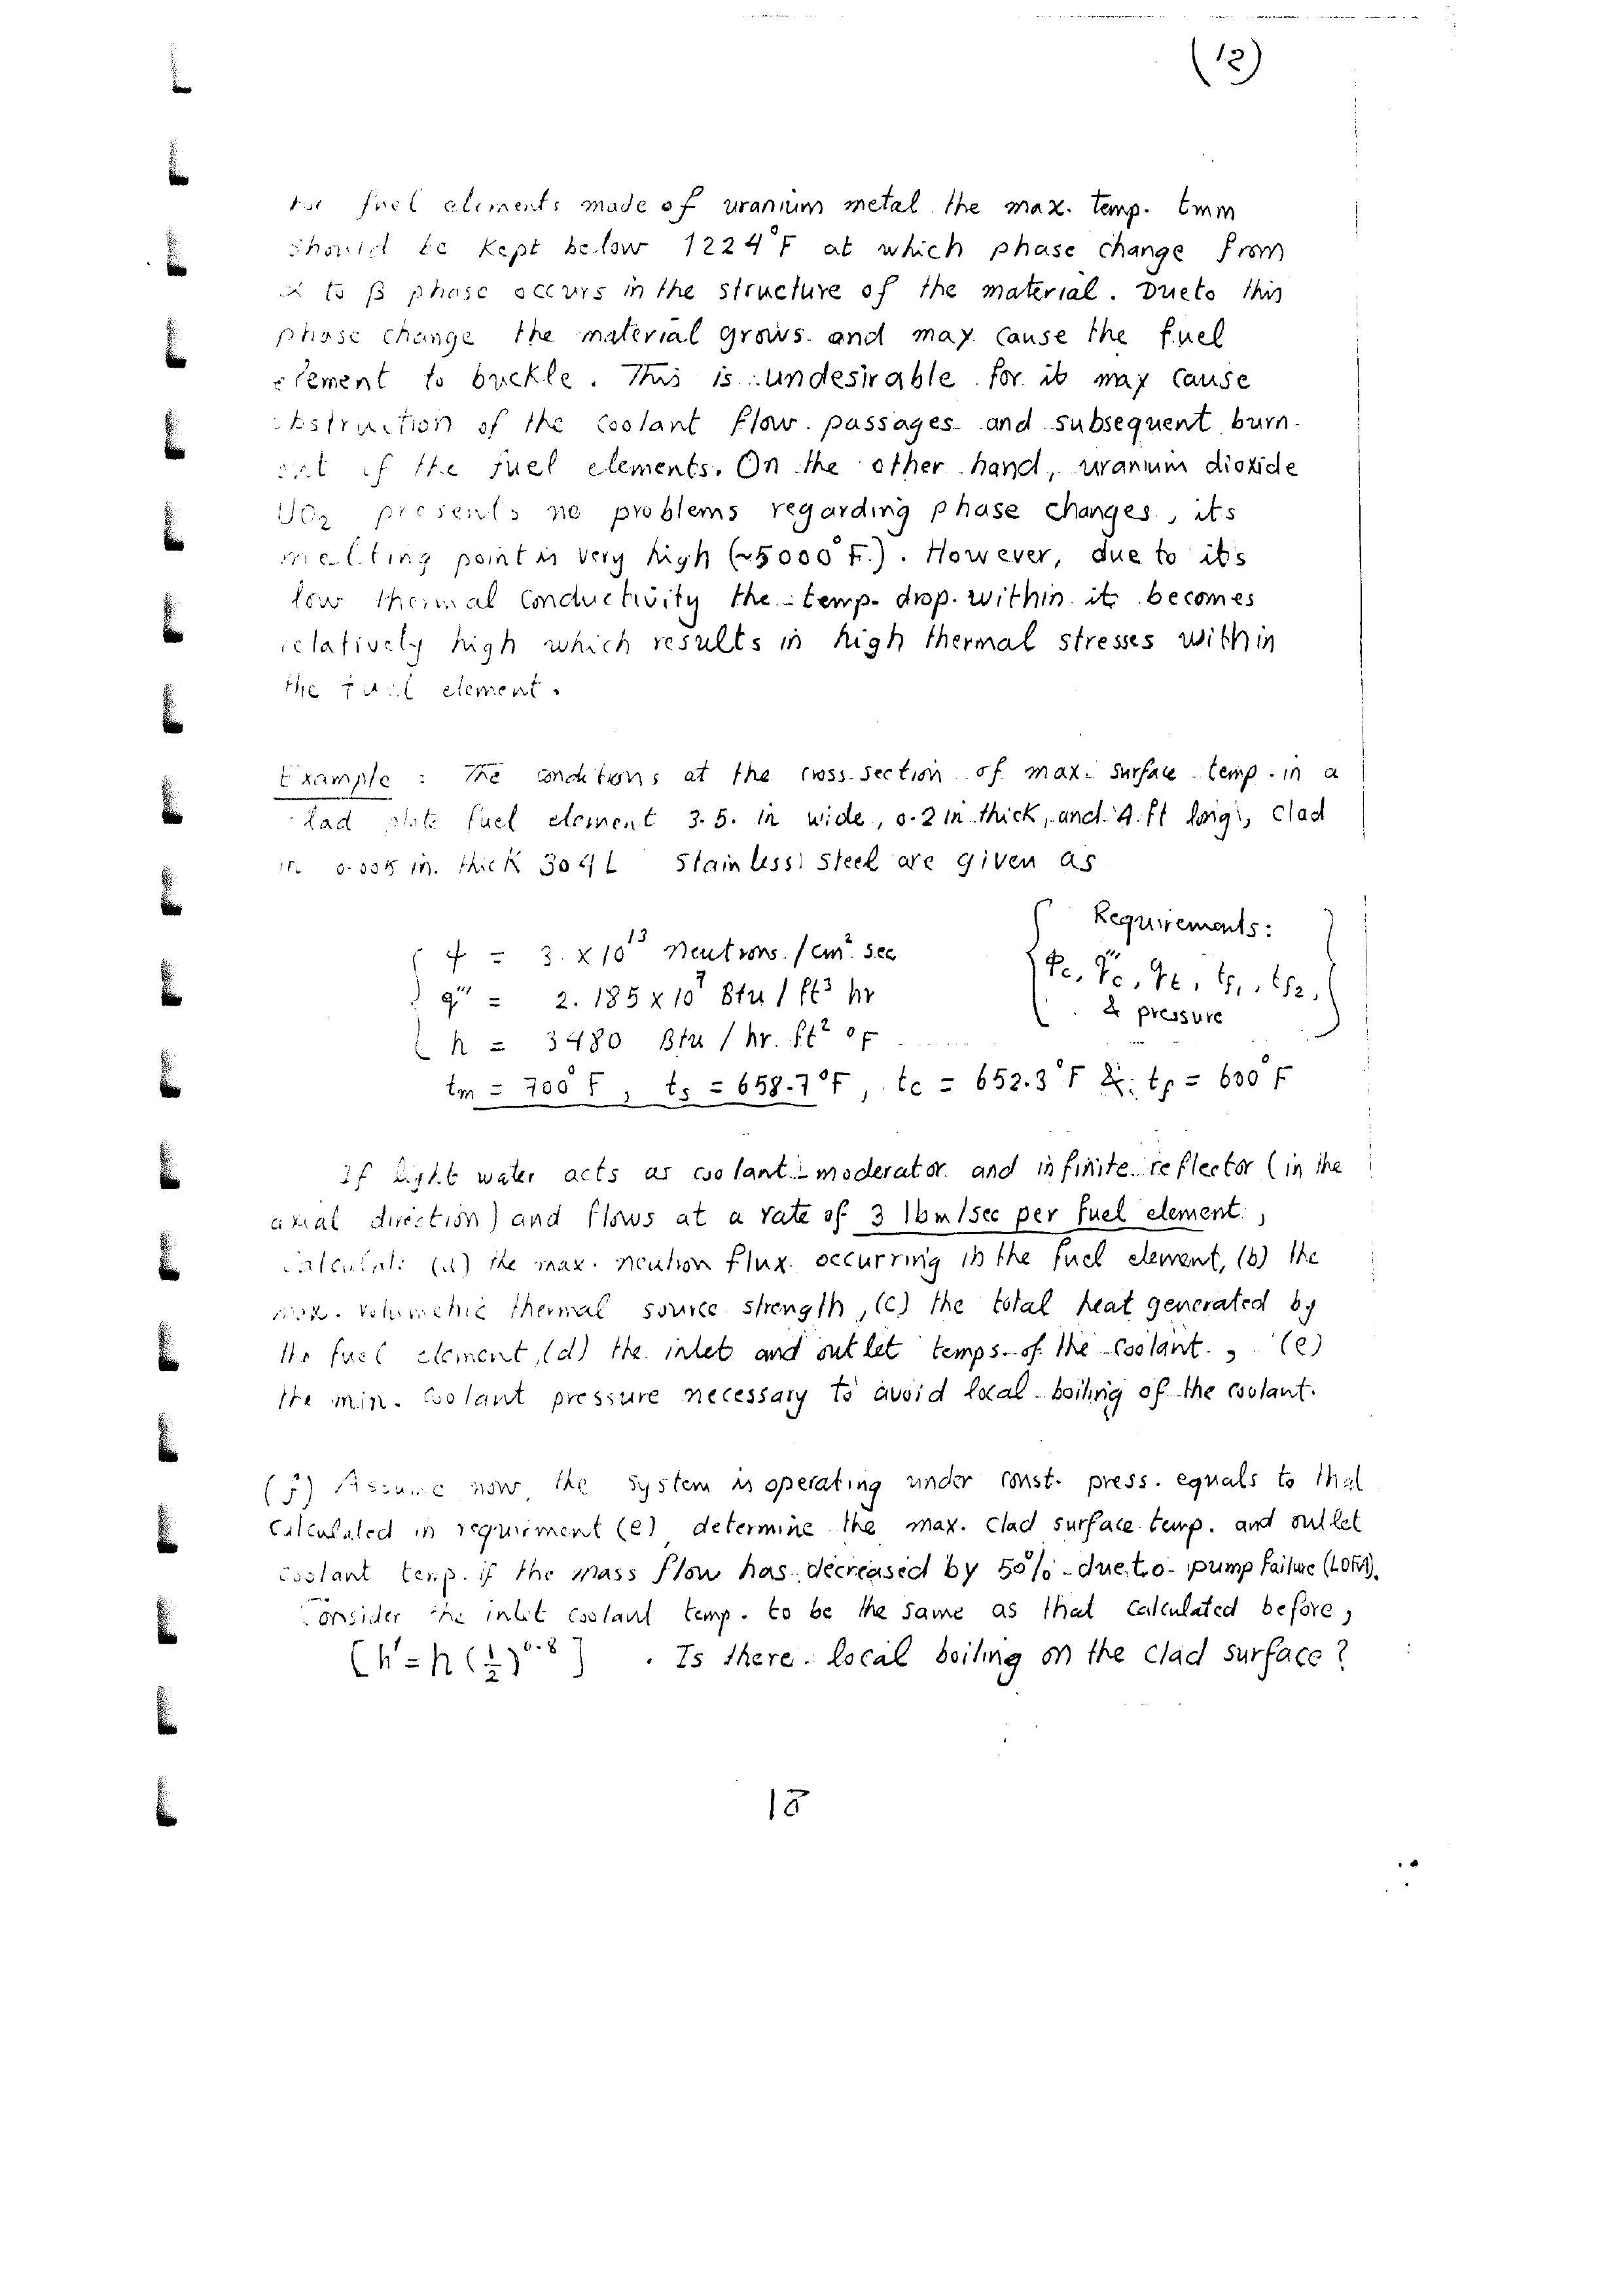 (12)
For fuel elements made of uranium metal the max. temp. tmm
should be kept below 1224°F at which phase change from
α to β phase occurs in the structure of the material. Due to this
phase change the material grows and may cause the fuel
element to buckle. This is undesirable for it may cause
obstruction of the coolant flow passages and subsequent burn-
out of the fuel elements. On the other hand, uranium dioxide
UO₂ presents no problems regarding phase changes, its
melting point is very high (~5000°F.). However, due to it's
low thermal conductivity the temp. drop within it becomes
relatively high which results in high thermal stresses within
the fuel element.
Example : The conditions at the cross-section of max. surface temp. in a
clad plate fuel element 3.5 in wide, 0.2 in thick, and 4 ft long, clad
in 0.005 in. thick 304L Stainless Steel are given as
φ = 3 x 10¹³ Neutrons/cm² sec
q''' = 2.185 x 10⁷ Btu / ft³ hr
h = 3480 Btu / hr. ft² °F
Requirements:
φc, qc''', qt, tf₁, tf₂,
& pressure
tm = 700°F, ts = 658.7°F, tc = 652.3°F &: tf = 600°F
If light water acts as coolant-moderator and infinite reflector (in the
axial direction) and flows at a rate of 3 lbm/sec per fuel element,
calculate (a) the max. neutron flux occurring in the fuel element, (b) the
max. volumetric thermal source strength, (c) the total heat generated by
the fuel element, (d) the inlet and outlet temps. of the coolant, (e)
the min. coolant pressure necessary to avoid local boiling of the coolant.
(f) Assume now the system is operating under const. press. equals to that
calculated in requirment (e) determine the max. clad surface temp. and outlet
coolant temp. if the mass flow has decreased by 50% due to pump failure (LOFA).
Consider the inlet coolant temp. to be the same as that calculated before,
[h' = h (1/2)^0.8] . Is there local boiling on the clad surface?
18